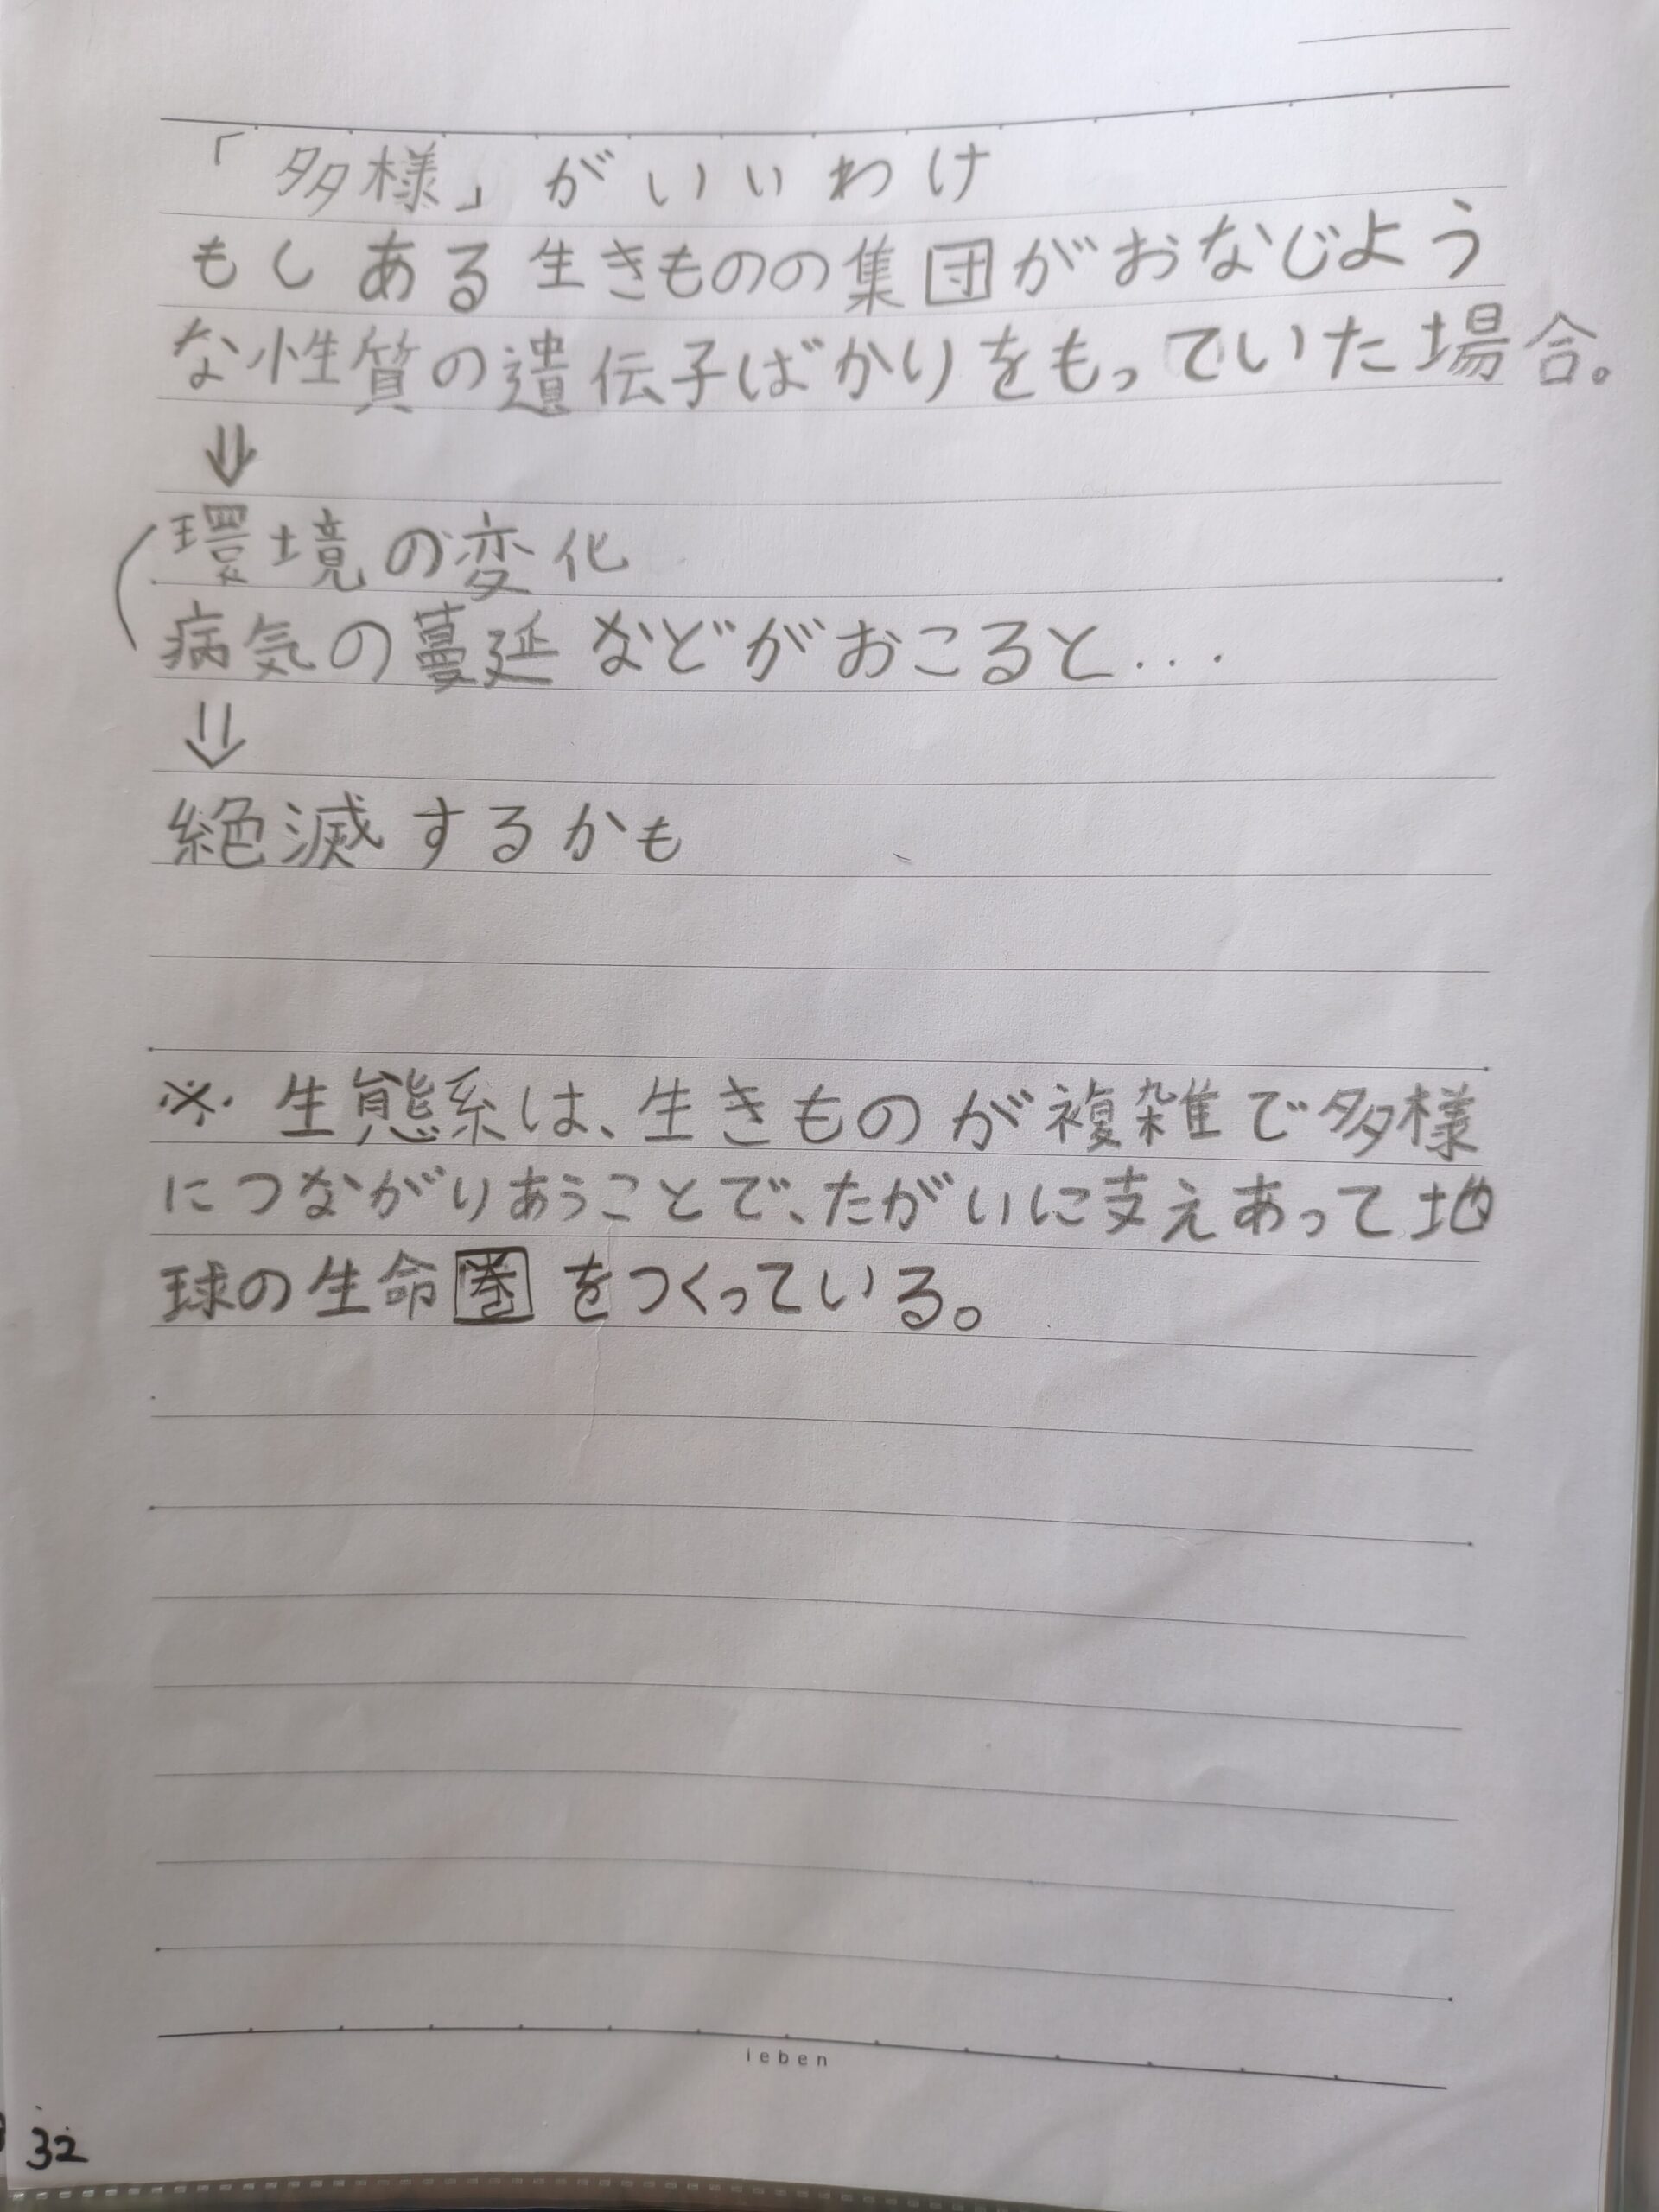 「多様」がいいわけ
もしある生きものの集団がおなじよう
な性質の遺伝子ばかりをもっていた場合。
⇓
環境の変化
病気の蔓延などがおこると...
⇓
絶滅するかも
※ 生態系は、生きものが複雑で多様
につながりあうことで、たがいに支えあって地
球の生命圏をつくっている。
ieben
32